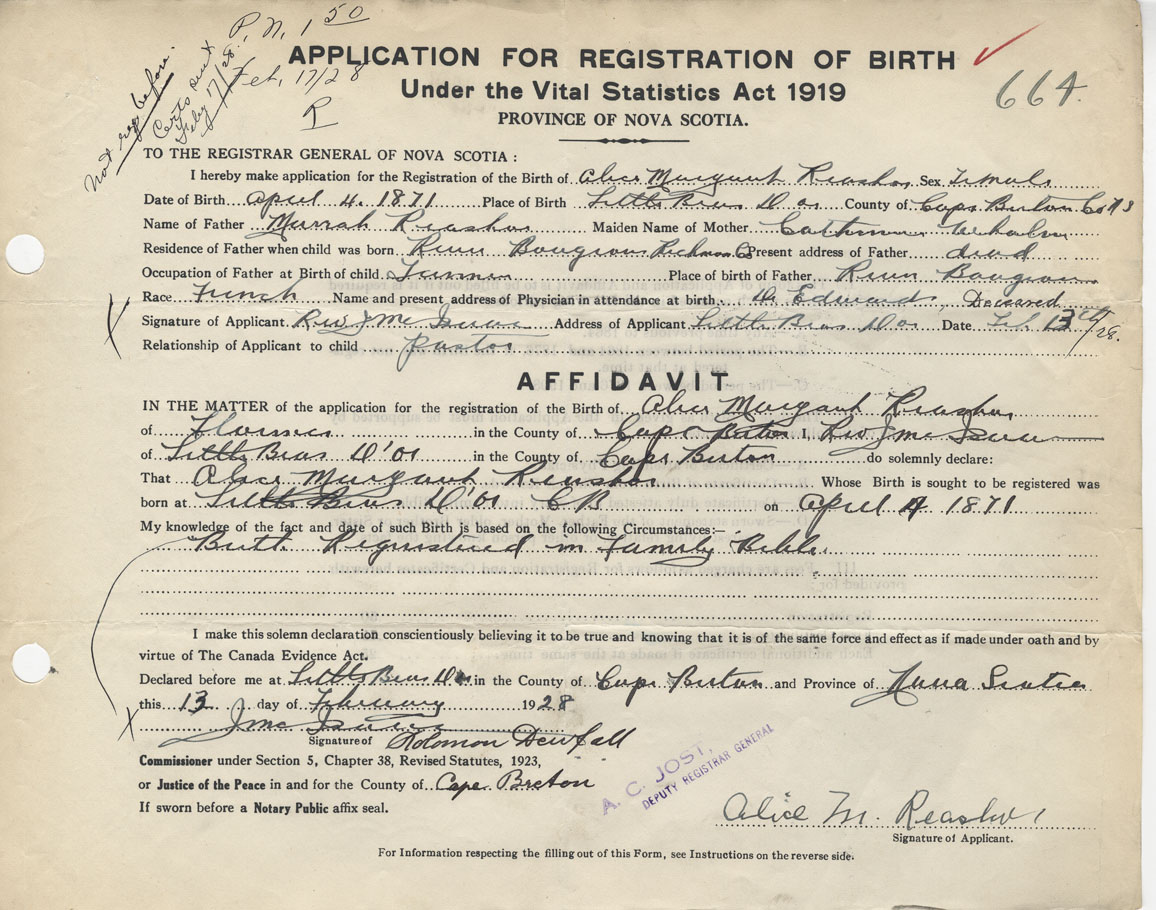 P. N. 1 50
Feb. 17/28
P
not reg before.
Certs sent
Feby 17/28.
APPLICATION FOR REGISTRATION OF BIRTH
664.
Under the Vital Statistics Act 1919
PROVINCE OF NOVA SCOTIA.
TO THE REGISTRAR GENERAL OF NOVA SCOTIA :
I hereby make application for the Registration of the Birth of Alice Margaret Reashor Sex Female
Date of Birth April 4. 1871 Place of Birth Little Bras D or County of Cape Breton Co N S
Name of Father Reashor Maiden Name of Mother Catherine
Residence of Father when child was born River Bourgeois Richmond Co Present address of Father dead
Occupation of Father at Birth of child. Farmer Place of birth of Father River Bourgeois
Race French Name and present address of Physician in attendance at birth. Dr Edwards Deceased
Signature of Applicant. Rev J Mc Isaac Address of Applicant Little Bras D or Date Feb 13th/28.
Relationship of Applicant to child pastor
AFFIDAVIT
IN THE MATTER of the application for the registration of the Birth of Alice Margaret Reashor
of Florence in the County of Cape Breton I, Rev J Mc Isaac
of Little Bras D'or in the County of Cape Breton do solemnly declare:
That Alice Margaret Reashor Whose Birth is sought to be registered was
born at Little Bras D'or C B on April 4 1871
My knowledge of the fact and date of such Birth is based on the following Circumstances:—
Birth Registered in Family Bible.
I make this solemn declaration conscientiously believing it to be true and knowing that it is of the same force and effect as if made under oath and by
virtue of The Canada Evidence Act.
Declared before me at Little Bras D or in the County of Cape Breton and Province of Nova Scotia
this 13 day of February 1928
J Mc Isaac
Signature of Solomon Dewfall
Commissioner under Section 5, Chapter 38, Revised Statutes, 1923,
or Justice of the Peace in and for the County of Cape Breton
If sworn before a Notary Public affix seal.
A. C. JOST,
DEPUTY REGISTRAR GENERAL
Alice M. Reashor
Signature of Applicant.
For Information respecting the filling out of this Form, see Instructions on the reverse side.